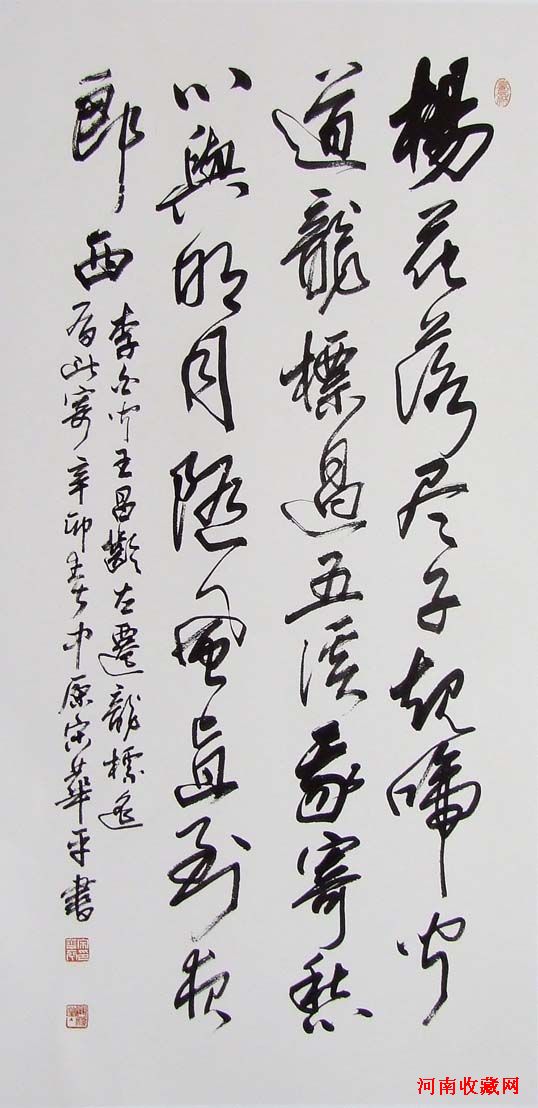 楊花落尽子規啼聞
道龍標過五溪我寄愁
心與明月隨風直到夜
郎西
李白聞王昌齡左遷龍標遙
有此寄辛卯春中原宋華平書
河南收藏网